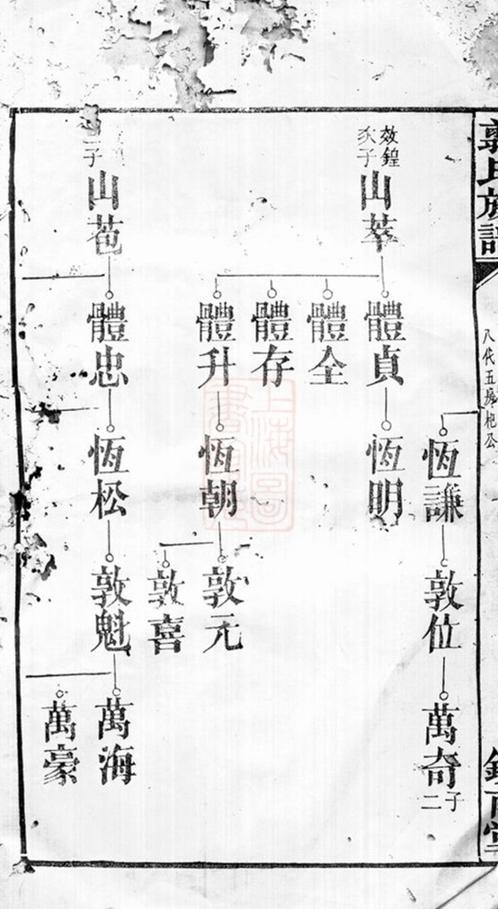 郭氏族譜
八代五塊枹公
恆謙
敦位
萬奇
二子
效鍠
次子
山萃
體貞
恆明
體全
體存
體升
恆朝
敦元
敦喜
子
山苞
體忠
恆松
敦魁
萬海
萬豪